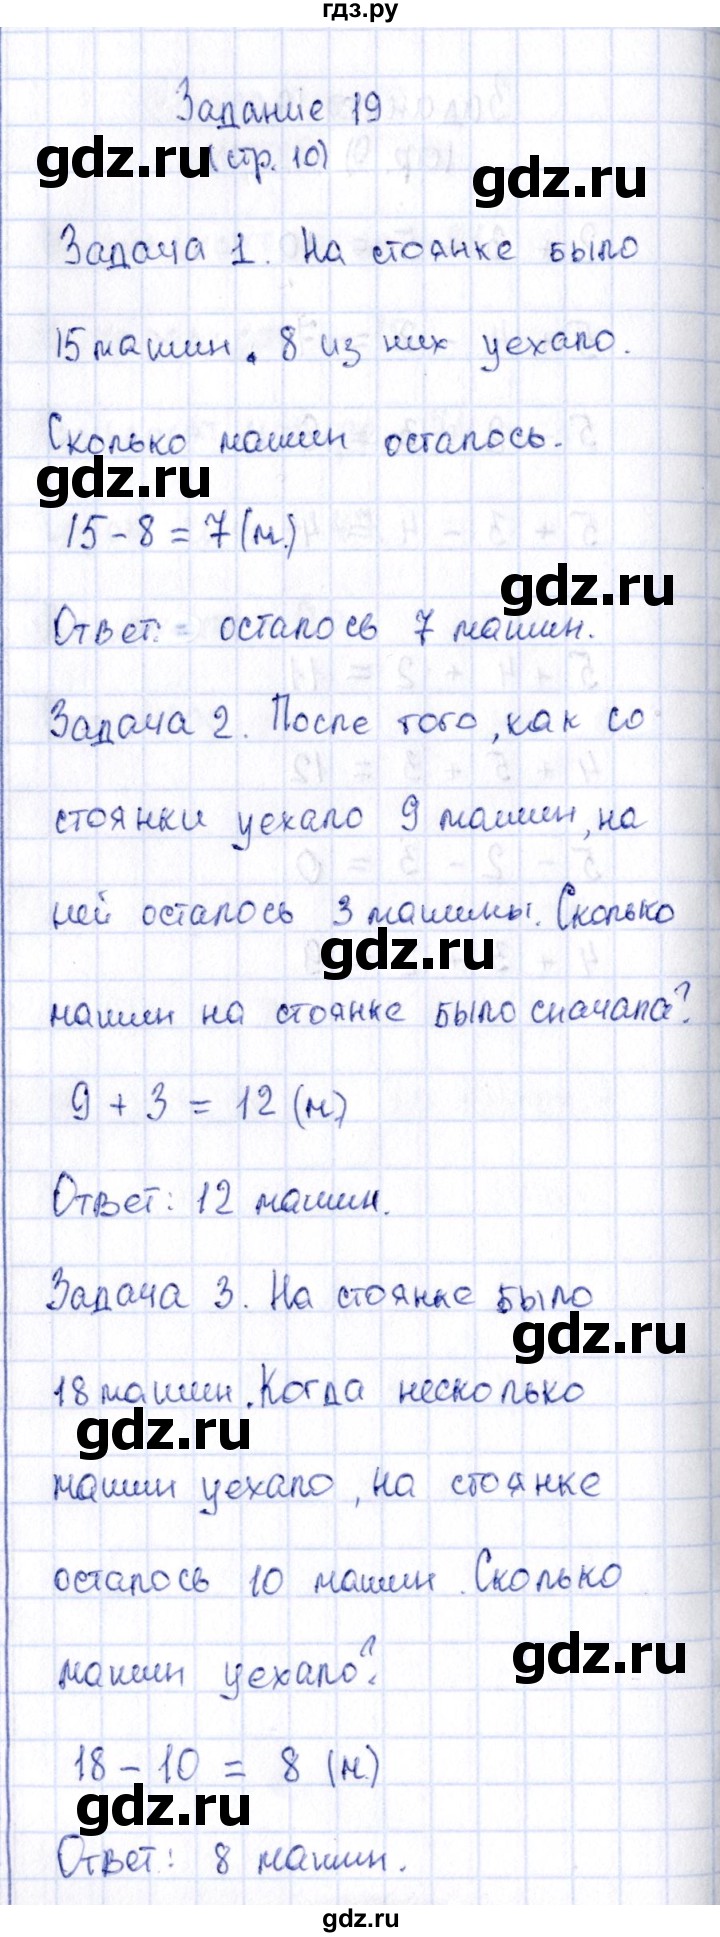 гдз.ру
Задание 19
gdz.ru
(стр. 10)
gdz.ru
Задача 1. На стоянке было
15 машин. 8 из них уехало.
Сколько машин осталось.
gdz.ru
15 - 8 = 7 (м.)
gdz.ru
Ответ: осталось 7 машин.
Задача 2. После того, как со
стоянки уехало 9 машин, на
ней осталось 3 машины. Сколько
gdz.ru
машин на стоянке было сначала?
9 + 3 = 12 (м.)
Ответ: 12 машин.
Задача 3. На стоянке было
gdz.ru
18 машин. Когда несколько
gdz.ru
машин уехало, на стоянке
осталось 10 машин. Сколько
gdz.ru
машин уехало?
18 - 10 = 8 (м.)
gdz.ru
Ответ: 8 машин.
gdz.ru